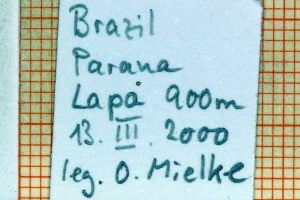 Brazil
Parana
Lapa 900m
13. III. 2000
leg. O. Mielke